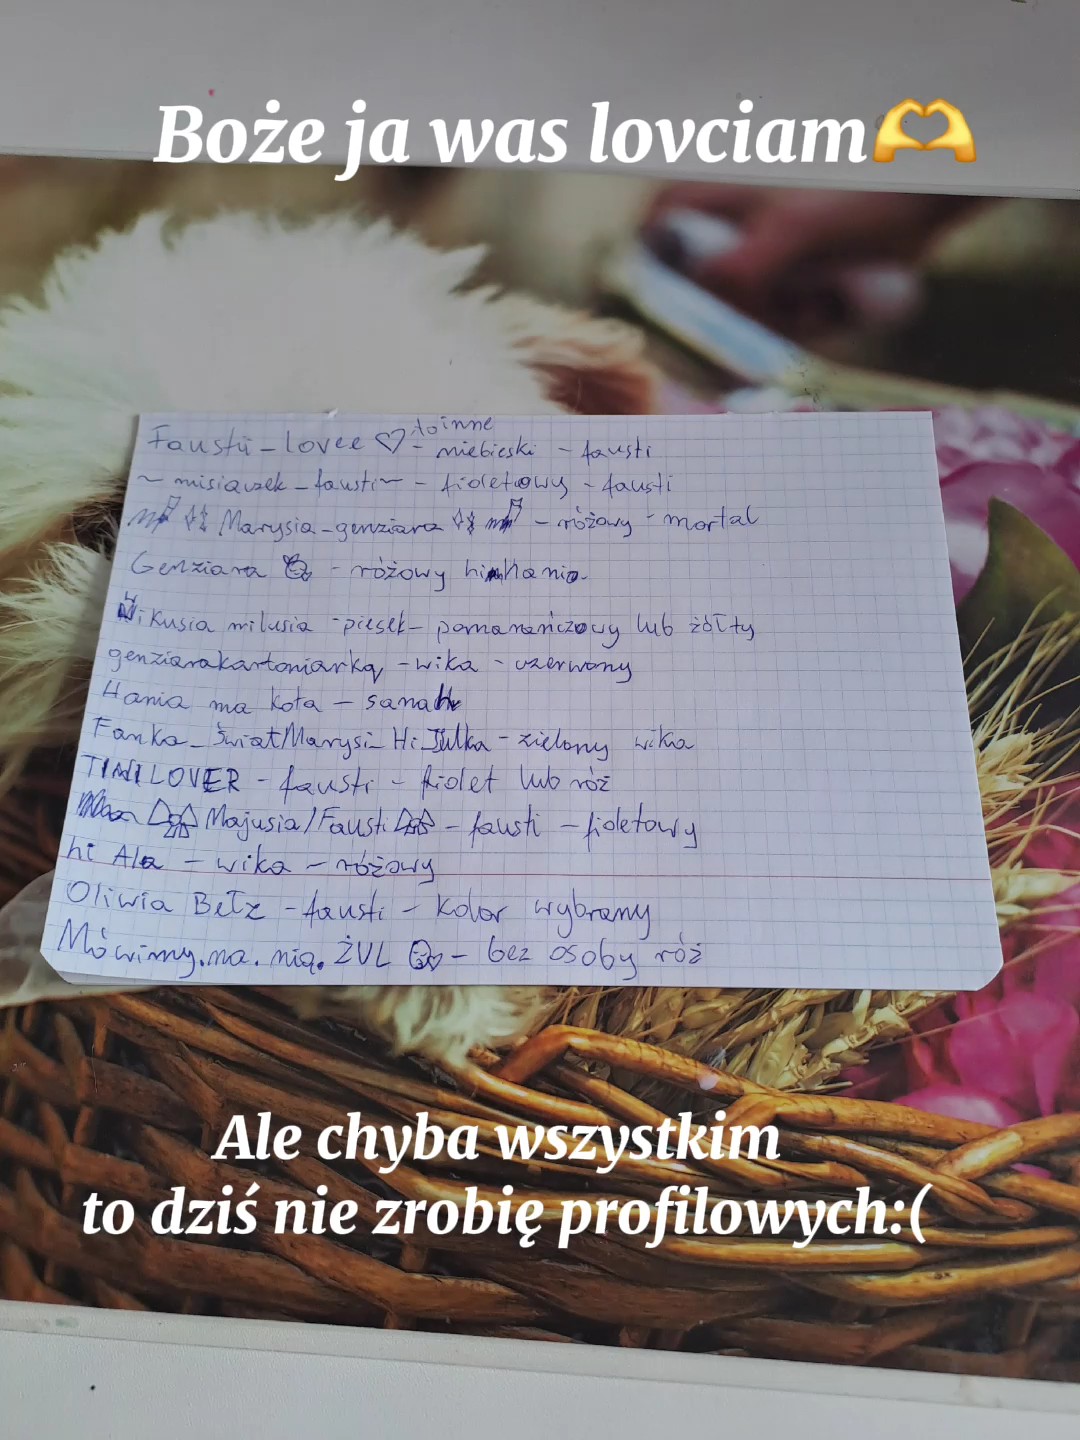 Boże ja was lovciam🫶
to inne
Faustii_lovee ♡ - niebieski - fausti
~ misiaczek_fausti ~ - fioletowy - fausti
Marysia_genziara - różowy - mortal
Genziara - różowy hi hania
Wikusia milusia - piesek - pomarańczowy lub żółty
genziarakartoniarka - wika - czerwony
Hania ma kota - sama
Fanka_ŚwiatMarysi_Hi Julka - zielony wika
TINILOVER - fausti - fiolet lub róż
Majusia/Fausti - fausti - fioletowy
hi Ala - wika - różowy
Oliwia Bełz - fausti - kolor wybrany
Mówimy.na.nią.ŻUL - bez osoby róż
Ale chyba wszystkim
to dziś nie zrobię profilowych:(